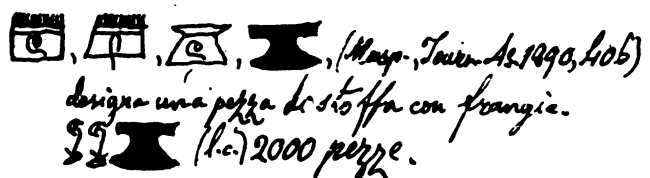 , , , , (Masp., Journ. As. 1890, 406)
designa una pezza di stoffa con frangie.
(l.c.) 2000 pezze.